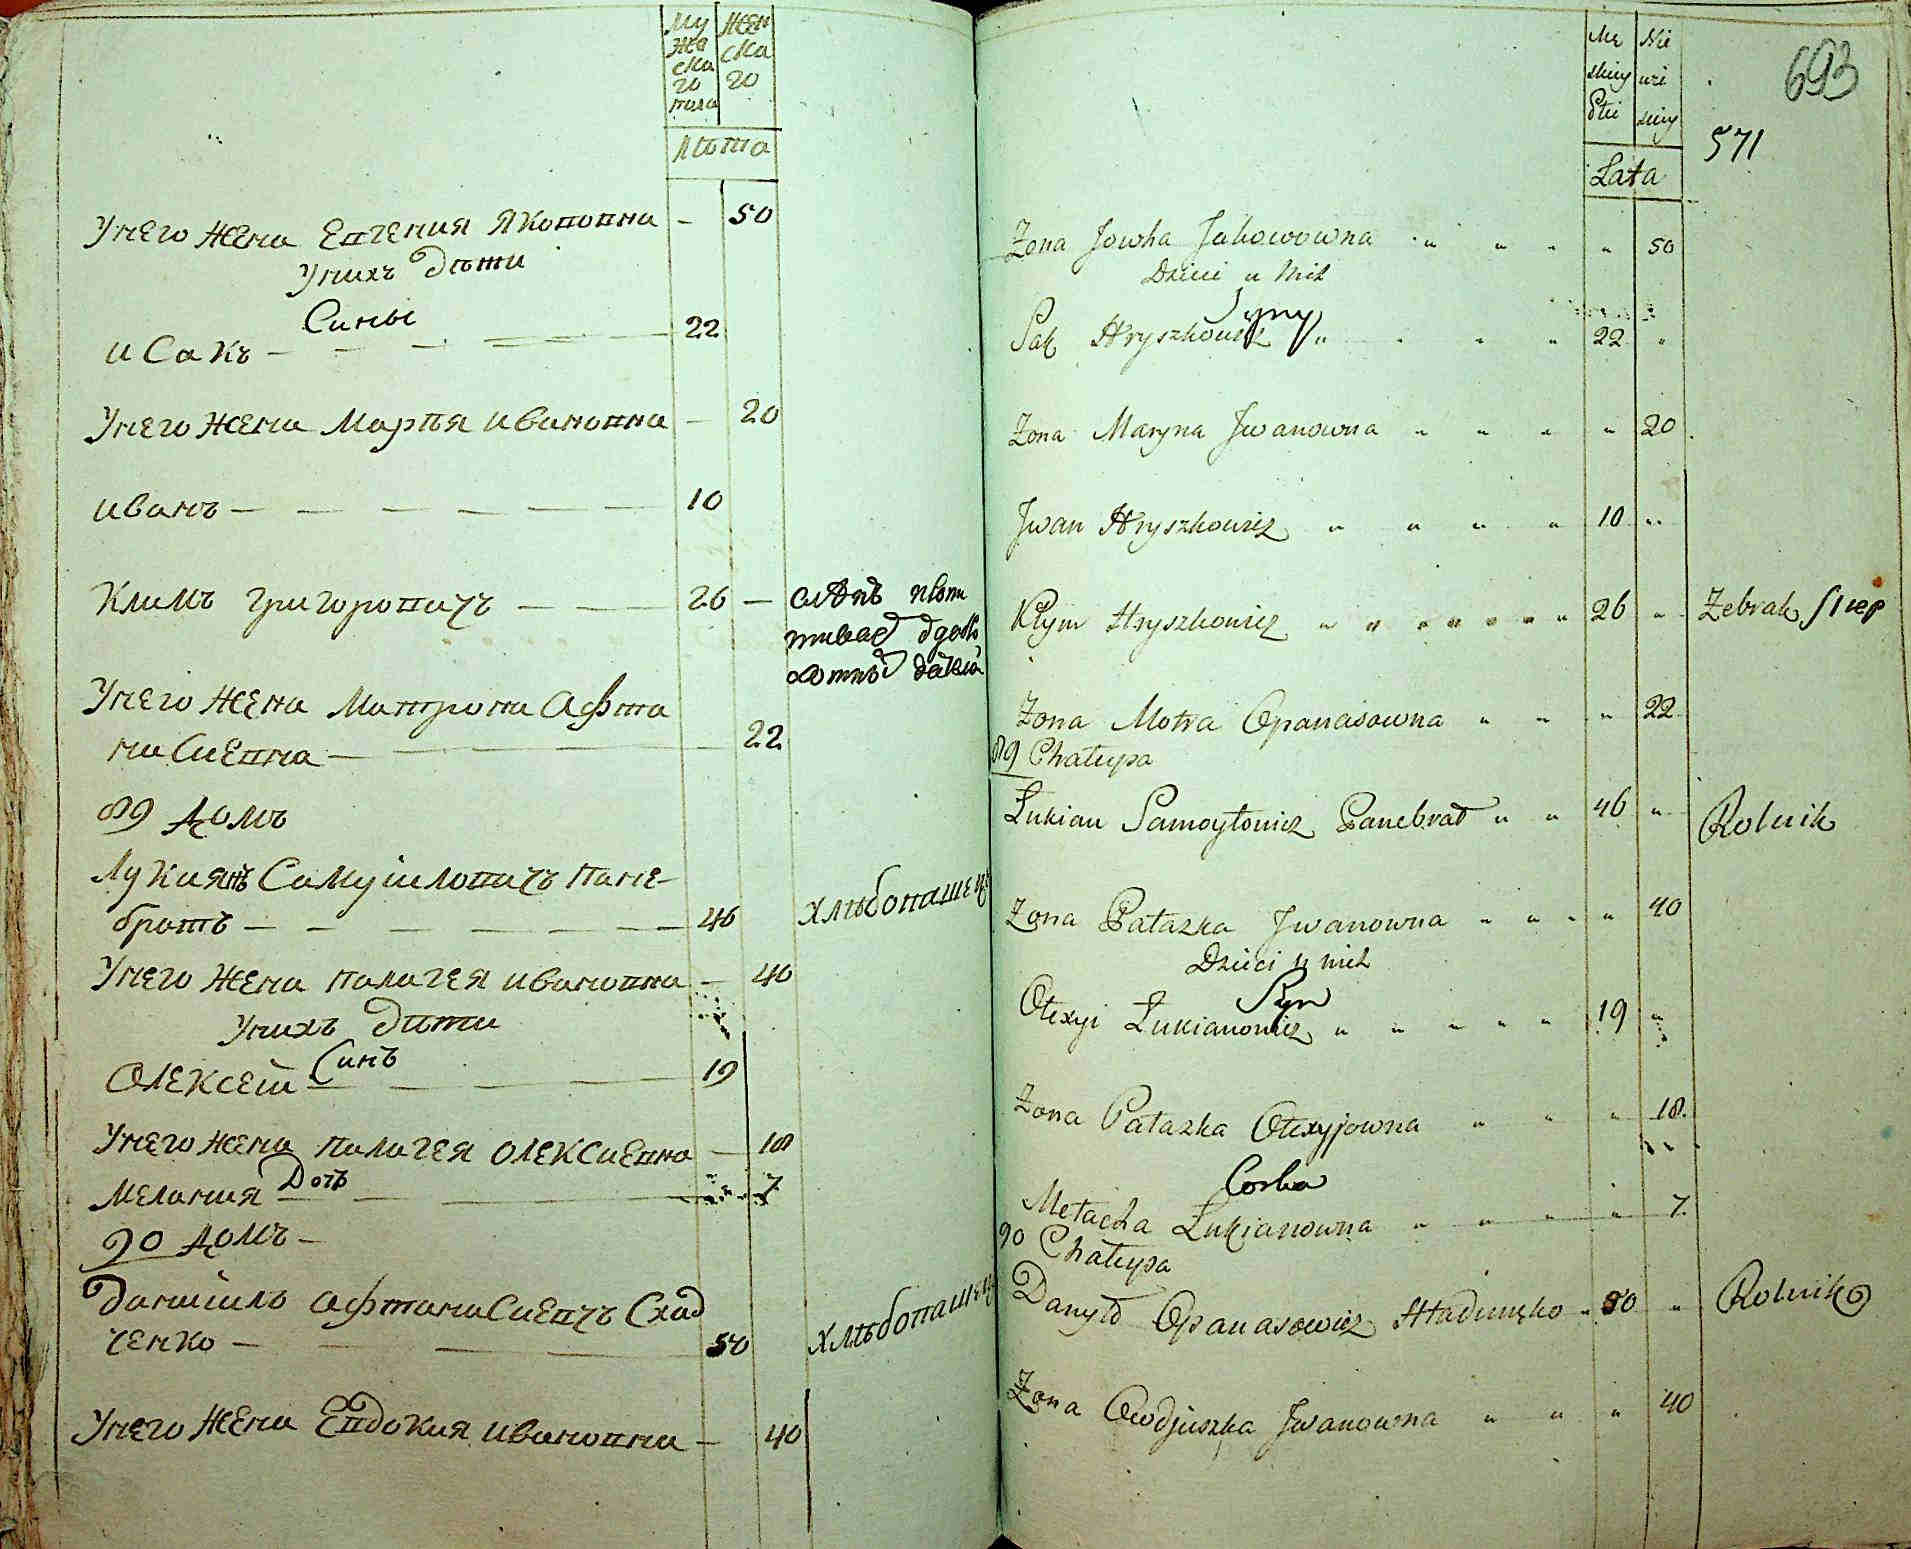 Му жен
же ска
ска го
го
пола
лѣта
Унего жена Евгения Якововна — 50
Унихъ дѣти
Сины
исакъ — 22
Унего жена Марья ивановна — 20
иванъ — 10
Климъ григоровичъ — 26 —
Унего жена Матрона Афта
насиевна — 22
89 домъ
Лукиянъ Самуйловичъ Пане-
братъ — 46 хлѣбопашец
Унего жена палагея ивановна — 40
Унихъ дѣти
Синъ
Олексей — 19
Унего жена палагея олексиевна — 18
Дочь
Мелания — 7
90 домъ —
Данийлъ афтанасиевичъ Схад
ченко — 50 хлѣбопашец
Унего жена Евдокия ивановна — 40
693
571
Mę Nie
skiey wie
Płci sciey
Lata
Żona Jowha Jakowowna " " " " 50
Dzieci u Nich
Syny
Sak Hryszkowicz " 22 "
Żona Maryna Jwanowna " " " " 20
Jwan Hryszkowicz " " " " 10 "
Kłym Hryszkowicz " " " " 26 " Żebrak Slep
Żona Motra Opanasowna " " " 22
89 Chałupa
Łukian Samoyłowicz Panebrat " " 46 " Rolnik
Żona Pałazka Jwanowna " " " " 40
Dzieci u nich
Syn
Ołexyi Łukianowicz " " " " " 19 "
Żona Pałazka Ołexyjowna " " " 18
Corka
Mełacha Łukjanowna " " " " 7
90 Chałupa
Danyło Opanasowicz Hładczęko " 50 " Rolnik
Żona Owdjuszka Jwanowna " " " 40